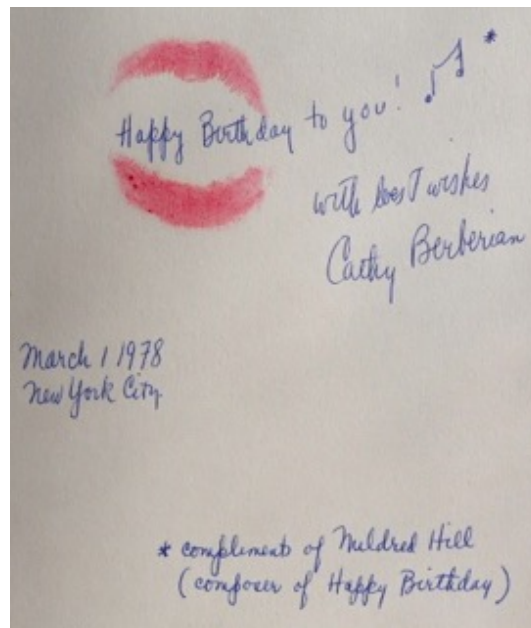 Happy Birthday to you! ♫ *
with best wishes
Cathy Berberian
March 1 1978
New York City
* compliments of Mildred Hill
(composer of Happy Birthday)